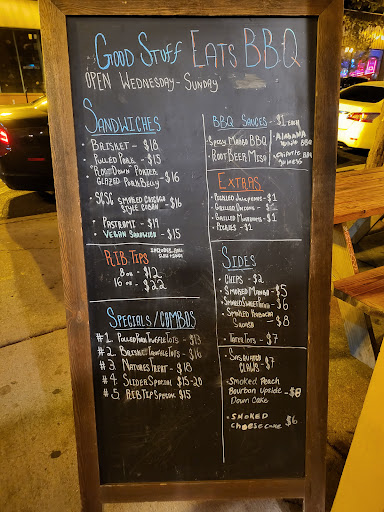 Good Stuff Eats BBQ
Open Wednesday - Sunday
Sandwiches
Brisket - $18
Pulled Pork - $15
Porter
Glazed Pork Belly - $16
Smoked Chicago
Style Cuban - $16
Pastrami - $19
Vegan Sandwich - $15
Rib Tips
8 oz - $12
16 oz - $22
Specials/Combos
#1. Pulled Pork Tots - $13
#2. Brisket Tots - $16
#3. Natures Treat - $18
#4. Slider Special $15-20
#5. Rib Tip Special $15
BBQ Sauces - $1 each
Spicy Mango BBQ
Root Beer Miso
Alabama
BBQ
Extras
Pickled Jalapenos - $1
Grilled Onions - $1
Grilled Mushrooms - $1
Pickles - $1
Sides
Chips - $2
Smoked Mango - $5
Smoked Sweet - $6
Smoked
- $8
Tater Tots - $7
Sasquatch
Claws - $7
Smoked Peach
Bourbon Upside - $8
Down Cake
Smoked
Cheesecake $6